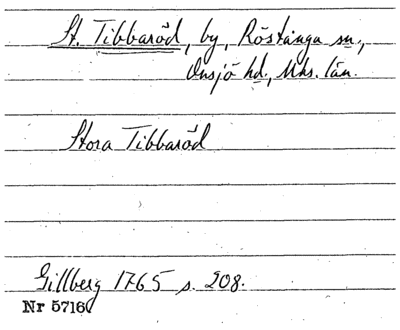 St. Tibbaröd, by, Röstånga sn.,
Onsjö hd., Mhs. län.
Stora Tibbaröd
Gillberg 1765 s. 208.
Nr 5716